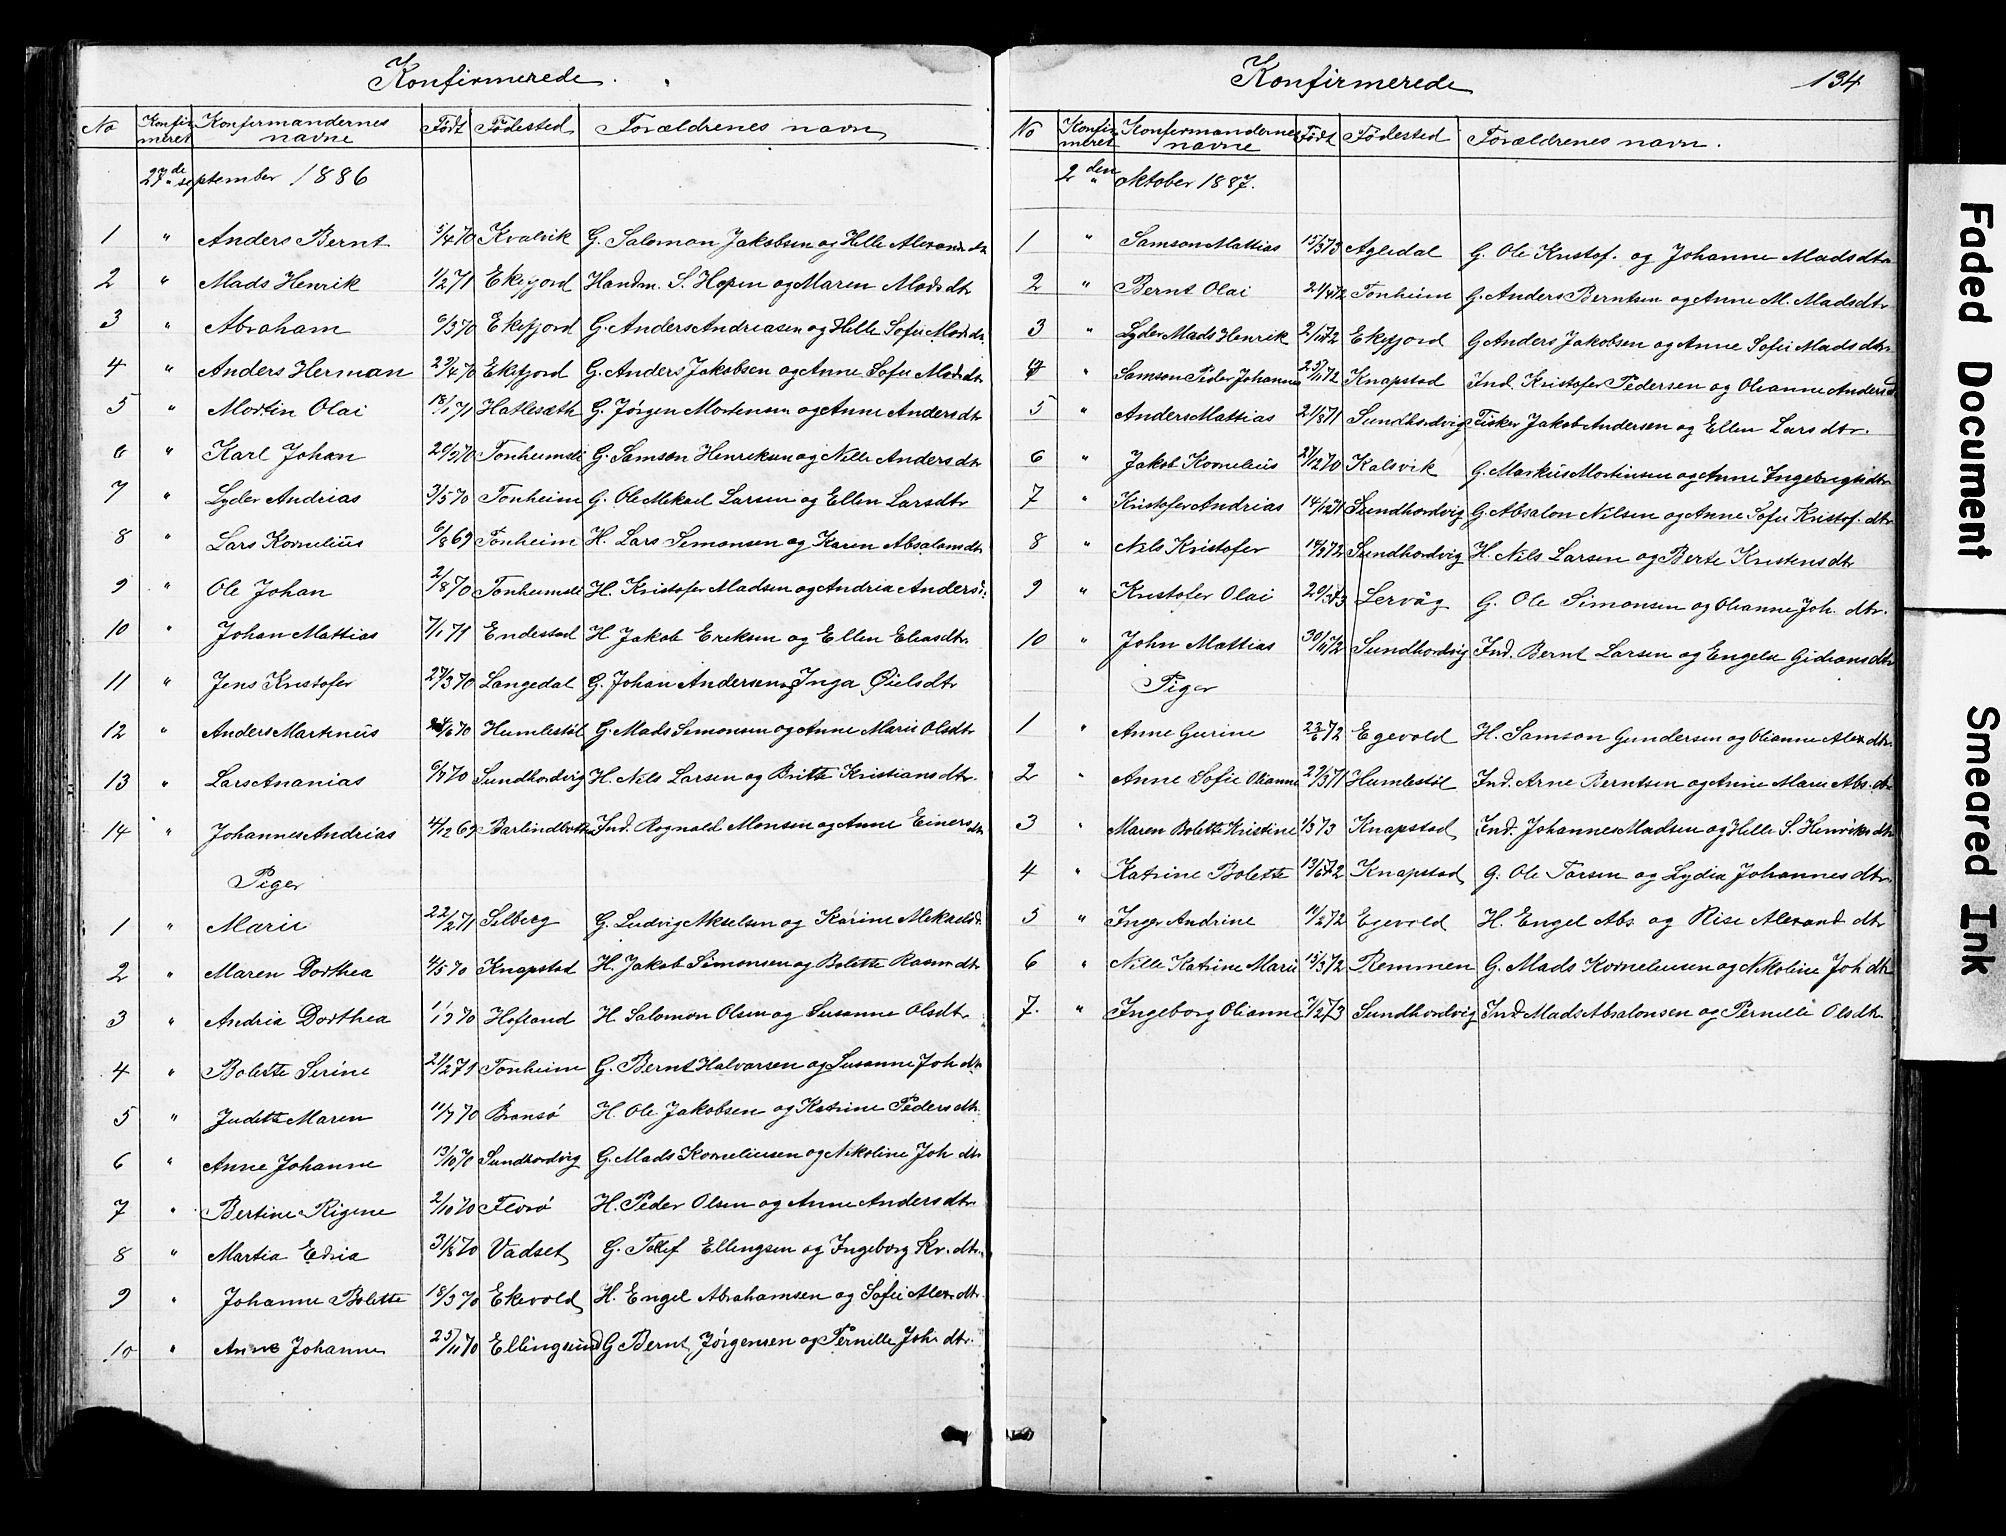 Konfirmerede.
No Konfirmeret Konfirmandernes navne Født Fødested Forældrenes navn
27de september 1886
1 " Anders Bernt 5/4 70 Kvalvik G. Salomon Jakobsen og Hille Alexandr dtr
2 " Mads Henrik 1/2 71 Ekefjord Handm. S. Hopen og Maren Mads dtr
3 " Abraham 6/3 70 Ekefjord G. Anders Andreasen og Hille Sofie Mads dtr.
4 " Anders Herman 23/4 70 Ekefjord G. Anders Jakobsen og Anne Sofie Mads dtr
5 " Mortin Olai 18/1 71 Hatlesæth G. Jørgen Mortensen og Anne Anders dtr
6 " Karl Johan 26/5 70 Tonheimsli G. Samson Henriksen og Nille Anders dtr
7 " Lyder Andrias 3/5 70 Tonheim G. Ole Mikael Larsen og Ellen Larsdtr
8 " Lars Kornelius 6/8 69 Tonheim H. Lars Simonsen og Karen Absalomsdtr
9 " Ole Johan 2/8 70 Tonheimsli H. Kristofer Madsen og Andria Andersd.
10 " Johan Mattias 7/1 71 Endestad H Jakob Eriksen og Ellen Eliasdtr
11 " Jens Kristofer 27/3 70 Langedal G. Johan Andersen og Inga Øiels dtr
12 " Anders Martinus 24/6 70 Humlestøl G. Mads Simonsen og Anne Marie Olsdtr
13 " Lars Ananias 6/7 70 Sundhordvig H. Nils Larsen og Britte Kristians dtr.
14 " Johannes Andrias 4/12 69 Barlindbotten Ind. Rognald Monsen og Anne Einers dtr
Piger
1 " Marie 22/2 71 Silberg G. Ludvig Akselsen og Karine Mikaelsd.
2 " Maren Dorthea 4/5 70 Knapstad H. Jakob Simonsen og Bolette Rasm dtr
3 " Andria Dorthea 1/12 70 Hofland H. Salomon Olsen og Susanne Olsdtr
4 " Bolette Serine 21/2 71 Tonheim G. Bernt Halvorsen og Susanne Joh dtr
5 " Judithe Maren 11/7 70 Bransø H. Ole Jakobsen og Katrine Peders dtr.
6 " Anne Johanne 13/10 70 Sundhordvig G. Mads Korneliusen og Nikoline Joh dtr
7 " Bertine Rigene 2/10 70 Florø H. Peder Olsen og Anne Anders dtr.
8 " Martia Edria 31/8 70 Vadset G. Tollef Ellingsen og Ingeborg Kr. dtr.
9 " Johanne Bolette 18/3 70 Ekevold H. Engel Abrahamsen og Sofie Alex dtr.
10 " Anne Johanne 25/11 70 Ellingsund G Bernt Jørgensen og Pernille Joh. dtr.
Konfirmerede 134
No Konfirmeret Konfirmandernes navne Født Fødested Forældrenes navn.
2den oktober 1887.
1 " Samson Mattias 15/3 73 Agledal G. Ole Kristof. og Johanne Mads dtr
2 " Bernt Olai 21/4 72 Tonheim G. Anders Berntsen og Anne M. Madsdtr
3 " Lyder Mads Henrik 2/10 72 Ekefjord G Anders Jakobsen og Anne Sofie Mads dtr
4 " Samson Peder Johannes 25/11 72 Knapstad Ind. Kristofer Pedersen og Olianne Andersd
5 " Anders Mattias 21/8 71 Sundhordvig Fisker Jakob Andersen og Ellen Lars dtr.
6 " Jakob Kornelius 27/2 70 Kalsvik G. Markus Mortinsen og Anne Ingebrigts dtr
7 " Kristofer Andrias 14/12 71 Sundhordvig G. Absalon Nilsen og Anne Sofie Kristof. dtr
8 " Nils Kristofer 14/9 72 Sundhordvig H. Nils Larsen og Berte Kristens dtr
9 " Kristofer Olai 20/1 73 Lervåg G. Ole Simonsen og Olianne Joh. dtr.
10 " John Mattias 30/11 72 Sundhordvig Ind. Bernt Larsen og Engelce Gideons dtr
Piger
1 " Anne Gurine 23/6 72 Egevold H. Samson Gundersen og Olianne Alex dtr.
2 " Anne Sofie Olianne 29/3 71 Humlestøl Ind. Arne Berntsen og Anne Marie Abs. dtr
3 " Maren Bolette Kristine 1/3 73 Knapstad Ind. Johannes Madsen og Hille S. Henriks dtr
4 " Katrine Bolette 13/6 72 Knapstad G. Ole Larsen og Lydia Johannes dtr.
5 " Inger Andrine 11/2 72 Egevold H. Engel Abr. og Rise Alexand. dtr
6 " Nille Katrine Marie 15/3 72 Remmen G. Mads Korneliusen og Nikoline Joh dtr
7. " Ingeborg Olianne 7/2 73 Sundhordvig Ind. Mads Absalonsen og Pernille Olsdtr.
Faded Document
Smeared Ink